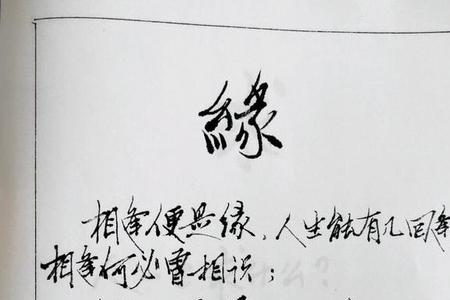 緣
相逢便是缘、人生能有几回逢
相逢何必曾相识；